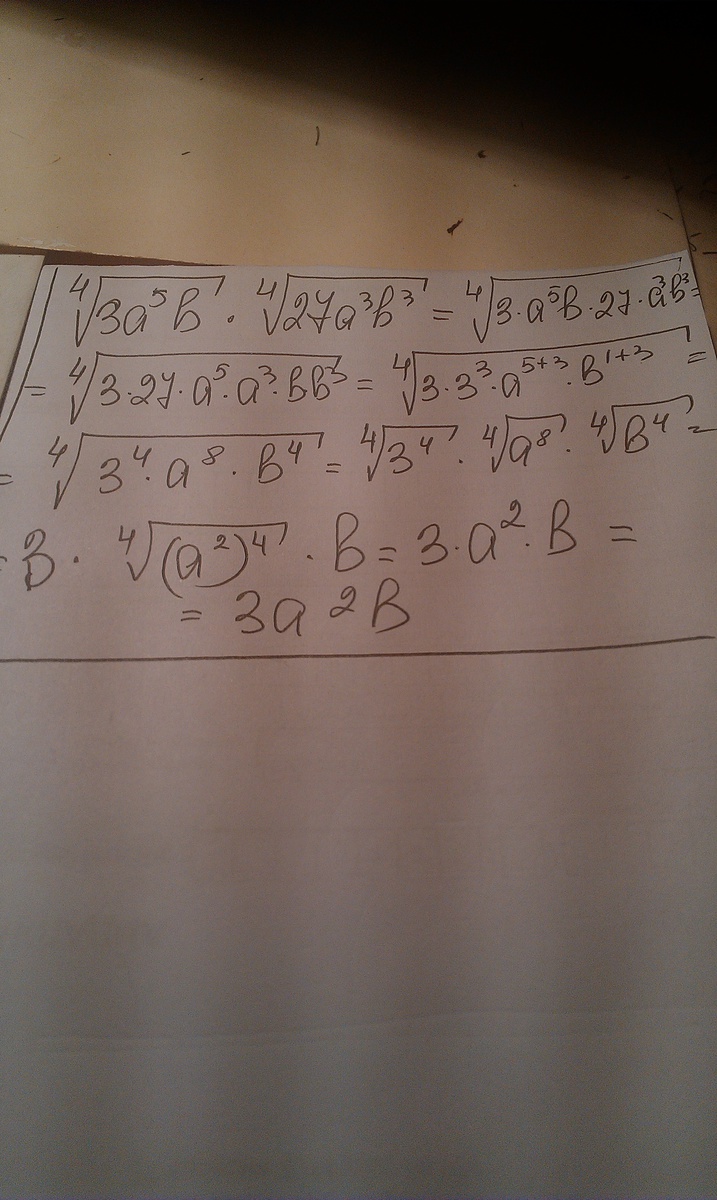 ⁴√(3a⁵b) · ⁴√(27a³b³) = ⁴√(3·a⁵b·27·a³b³) =
= ⁴√(3·27·a⁵·a³·bb³) = ⁴√(3·3³·a⁵⁺³·b¹⁺³) =
= ⁴√(3⁴·a⁸·b⁴) = ⁴√(3⁴) · ⁴√(a⁸) · ⁴√(b⁴) =
= 3 · ⁴√((a²)⁴) · b = 3·a²·b =
= 3a²b